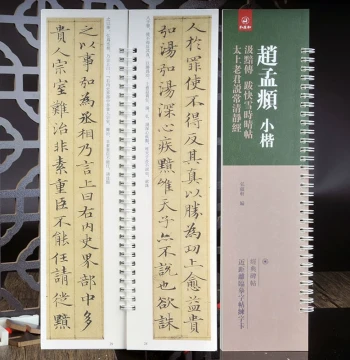 趙孟頫 小楷
汲黯傳 跋快雪時晴帖
太上老君說常清靜經
經典碑帖
近距離臨摹字帖練字卡
人於罪使不得反其真以勝為功上愈益貴
弘湯弘湯深心疾黯唯天子亦不說也欲誅
之以事弘為丞相乃言上曰右內史界部中多
貴人宗室難治非素重臣不能任請徙黯